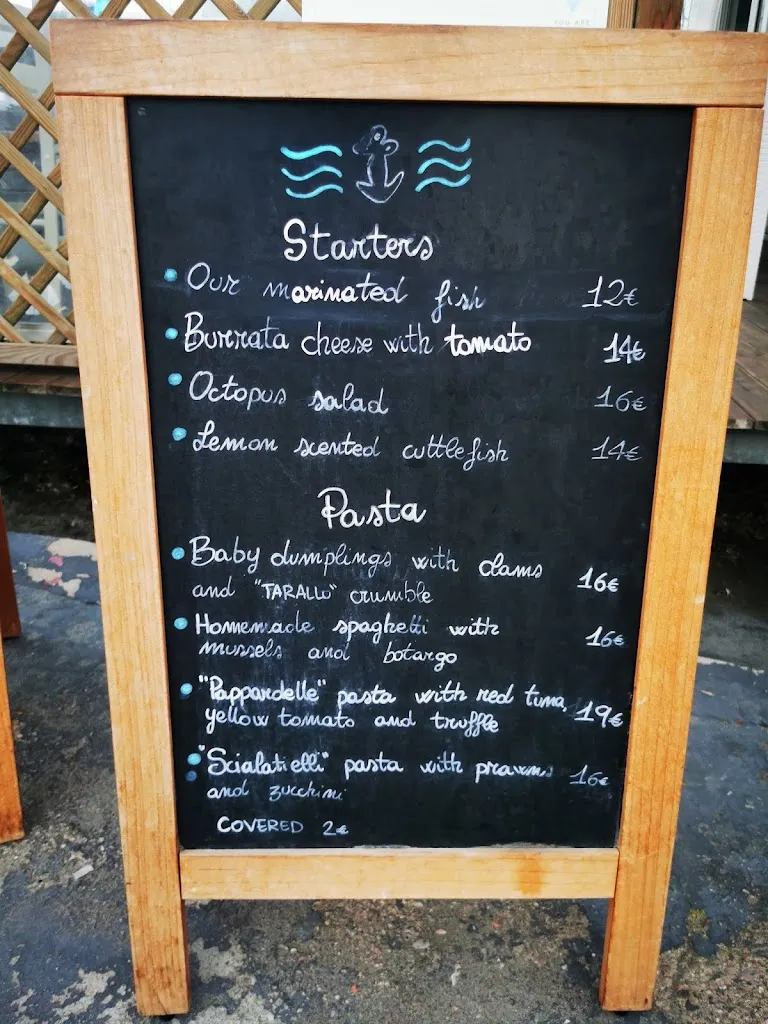 YOU ARE
Starters
Our marinated fish 12€
Burrata cheese with tomato 14€
Octopus salad 16€
Lemon scented cuttlefish 14€
Pasta
Baby dumplings with clams
and "TARALLO" crumble 16€
Homemade spaghetti with
mussels and botargo 16€
"Pappardelle" pasta with red tuna,
yellow tomato and truffle 19€
"Scialatielli" pasta with prawns 16€
and zucchini
COVERED 2€